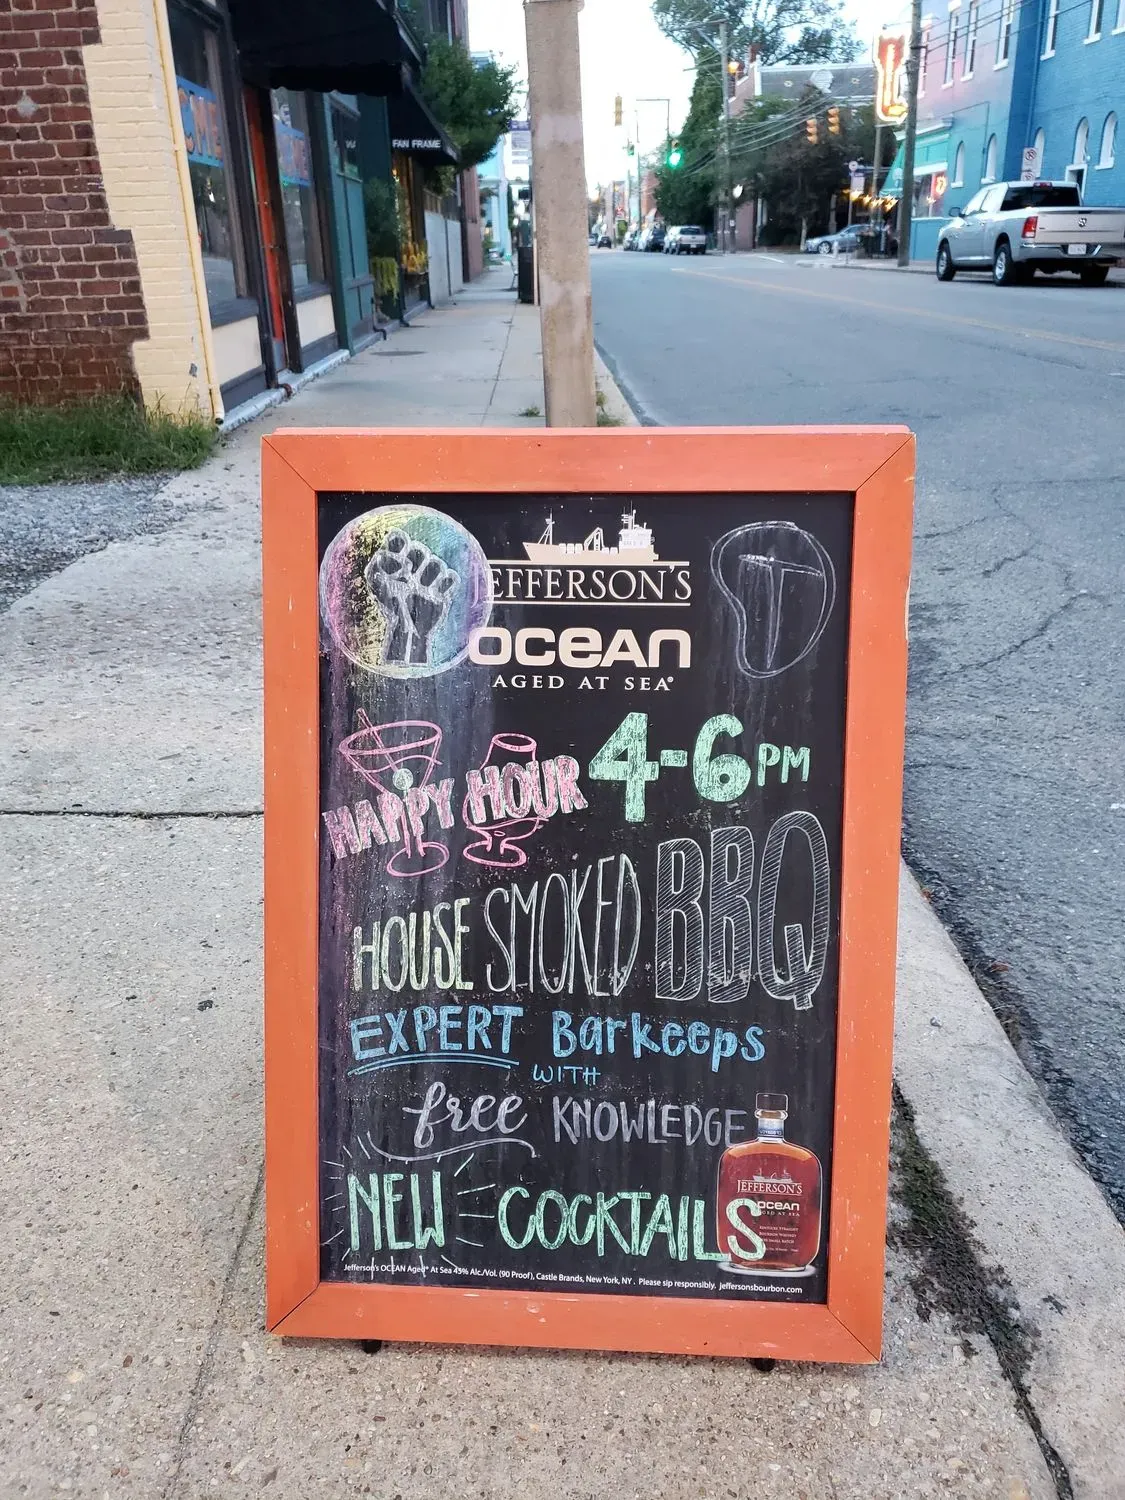 FAN FRAME
JEFFERSON'S
OCEAN
AGED AT SEA®
HAPPY HOUR 4-6 PM
HOUSE SMOKED BBQ
EXPERT Barkeeps
WITH
free KNOWLEDGE
NEW COCKTAILS
JEFFERSON'S
OCEAN
AGED AT SEA
Jefferson's OCEAN Aged® At Sea 45% Alc./Vol. (90 Proof), Castle Brands, New York, NY. Please sip responsibly. jeffersonsbourbon.com